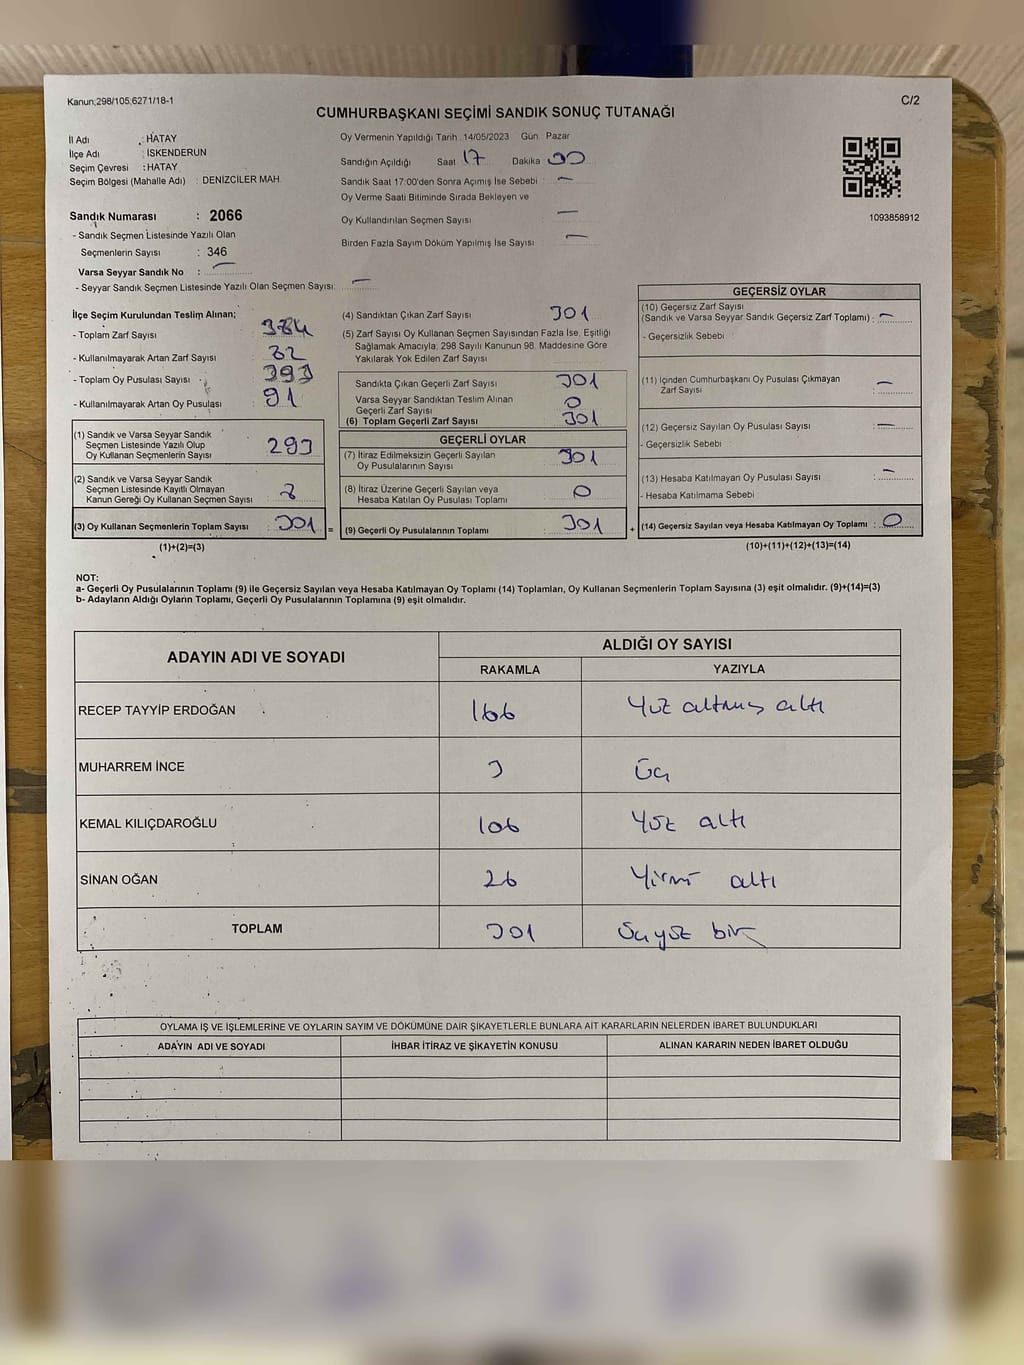 Kanun;298/105;6271/18-1
C/2
CUMHURBAŞKANI SEÇİMİ SANDIK SONUÇ TUTANAĞI
İl Adı : HATAY
İlçe Adı : İSKENDERUN
Seçim Çevresi : HATAY
Seçim Bölgesi (Mahalle Adı) : DENİZCİLER MAH.
Sandık Numarası : 2066
- Sandık Seçmen Listesinde Yazılı Olan
Seçmenlerin Sayısı : 346
Varsa Seyyar Sandık No : —
- Seyyar Sandık Seçmen Listesinde Yazılı Olan Seçmen Sayısı: —
Oy Vermenin Yapıldığı Tarih 14/05/2023 Gün Pazar
Sandığın Açıldığı Saat 17 Dakika 00
Sandık Saat 17:00'den Sonra Açımış İse Sebebi : —
Oy Verme Saati Bitiminde Sırada Bekleyen ve
Oy Kullandırılan Seçmen Sayısı —
Birden Fazla Sayım Döküm Yapılmış İse Sayısı —
1093858912
İlçe Seçim Kurulundan Teslim Alınan;
- Toplam Zarf Sayısı : 384
- Kullanılmayarak Artan Zarf Sayısı :
- Toplam Oy Pusulası Sayısı : 393
- Kullanılmayarak Artan Oy Pusulası : 91
(1) Sandık ve Varsa Seyyar Sandık
Seçmen Listesinde Yazılı Olup
Oy Kullanan Seçmenlerin Sayısı : 293
(2) Sandık ve Varsa Seyyar Sandık
Seçmen Listesinde Kayıtlı Olmayan
Kanun Gereği Oy Kullanan Seçmen Sayısı :
(3) Oy Kullanan Seçmenlerin Toplam Sayısı : 301 =
(1)+(2)=(3)
(4) Sandıktan Çıkan Zarf Sayısı 301
(5) Zarf Sayısı Oy Kullanan Seçmen Sayısından Fazla İse, Eşitliği
Sağlamak Amacıyla; 298 Sayılı Kanunun 98. Maddesine Göre
Yakılarak Yok Edilen Zarf Sayısı
Sandıkta Çıkan Geçerli Zarf Sayısı 301
Varsa Seyyar Sandıktan Teslim Alınan
Geçerli Zarf Sayısı 0
(6) Toplam Geçerli Zarf Sayısı 301
GEÇERLİ OYLAR
(7) İtiraz Edilmeksizin Geçerli Sayılan
Oy Pusulalarının Sayısı 301
(8) İtiraz Üzerine Geçerli Sayılan veya
Hesaba Katılan Oy Pusulası Toplamı 0
(9) Geçerli Oy Pusulalarının Toplamı 301 +
GEÇERSİZ OYLAR
(10) Geçersiz Zarf Sayısı
(Sandık ve Varsa Seyyar Sandık Geçersiz Zarf Toplamı) : —
- Geçersizlik Sebebi :
(11) İçinden Cumhurbaşkanı Oy Pusulası Çıkmayan
Zarf Sayısı : —
(12) Geçersiz Sayılan Oy Pusulası Sayısı : —
- Geçersizlik Sebebi :
(13) Hesaba Katılmayan Oy Pusulası Sayısı : —
- Hesaba Katılmama Sebebi :
(14) Geçersiz Sayılan veya Hesaba Katılmayan Oy Toplamı : 0
(10)+(11)+(12)+(13)=(14)
NOT:
a- Geçerli Oy Pusulalarının Toplamı (9) ile Geçersiz Sayılan veya Hesaba Katılmayan Oy Toplamı (14) Toplamları, Oy Kullanan Seçmenlerin Toplam Sayısına (3) eşit olmalıdır. (9)+(14)=(3)
b- Adayların Aldığı Oyların Toplamı, Geçerli Oy Pusulalarının Toplamına (9) eşit olmalıdır.
ADAYIN ADI VE SOYADI ALDIĞI OY SAYISI
RAKAMLA YAZIYLA
RECEP TAYYİP ERDOĞAN 166 Yüz altmış altı
MUHARREM İNCE 3 Üç
KEMAL KILIÇDAROĞLU 106 Yüz altı
SİNAN OĞAN 26 Yirmi altı
TOPLAM 301 bir
OYLAMA İŞ VE İŞLEMLERİNE VE OYLARIN SAYIM VE DÖKÜMÜNE DAİR ŞİKAYETLERLE BUNLARA AİT KARARLARIN NELERDEN İBARET BULUNDUKLARI
ADAYIN ADI VE SOYADI İHBAR İTİRAZ VE ŞİKAYETİN KONUSU ALINAN KARARIN NEDEN İBARET OLDUĞU